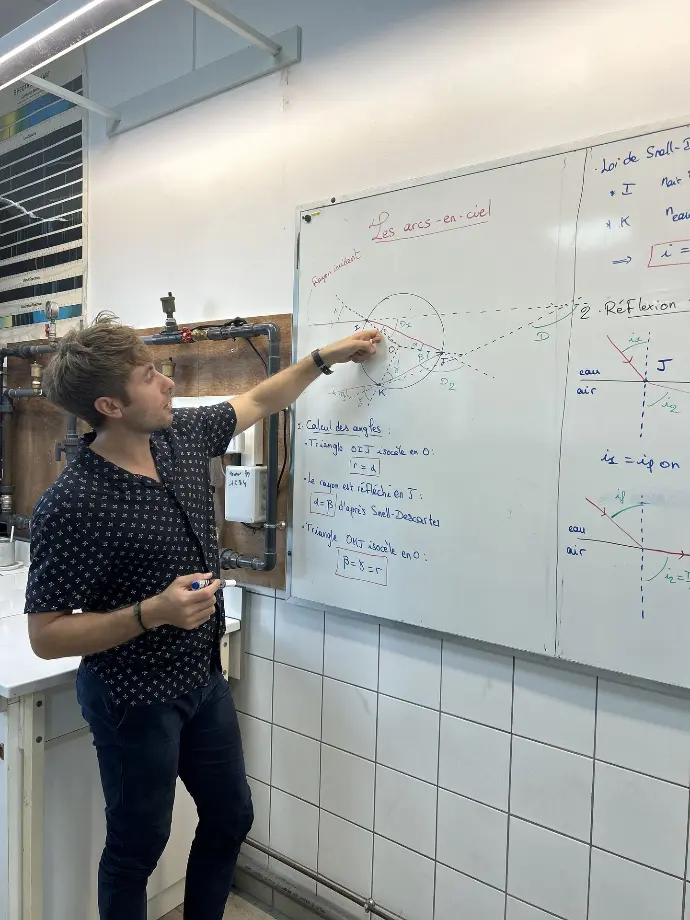 Les arcs-en-ciel
Rayon incident
I
J
K
D
D2
1. Calcul des angles :
• Triangle OIJ isocèle en O :
r = α
• Le rayon est réfléchi en J :
α = β d'après Snell-Descartes
• Triangle OKJ isocèle en O :
β = γ = r
• Loi de Snell-
* I nair
* K neau
⇒ i =
2. Réflexion
eau
air
J
i2
eau
air